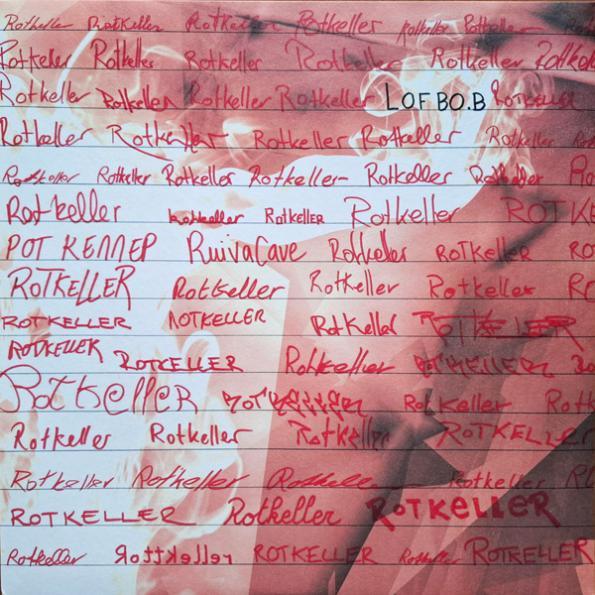 Rotkeller Rotkeller Rotkeller Rotkeller Rotkeller Rotkeller
Rotkeller Rotkeller Rotkeller Rotkeller Rotkeller Rotkeller
Rotkeller Rotkeller Rotkeller Rotkeller LOFBO.B ROTKELLER
Rotkeller Rotkeller Rotkeller Rotkeller Rotkeller
Rotkeller Rotkeller Rotkeller Rotkeller Rotkeller Rotkeller
Rotkeller Rotkeller ROTKELLER Rotkeller ROTKE
РОТ КЕЛЛЕР RuivaCave Rotkeller ROTKELLER RO
ROTKELLER Rotkeller Rotkeller Rotkeller
ROTKELLER ROTKELLER Rotkeller ROTKELLER
ROTKELLER ROTKELLER Rotkeller ROTKELLER
Rotkeller ROTKELLER Rotkeller Rotk
Rotkeller Rotkeller Rotkeller ROTKELLER
Rotkeller Rotkeller Rotkeller Rotkeller
ROTKELLER Rotkeller ROTKELLER
Rotkeller Rotkeller ROTKELLER Rotkeller ROTKELLER